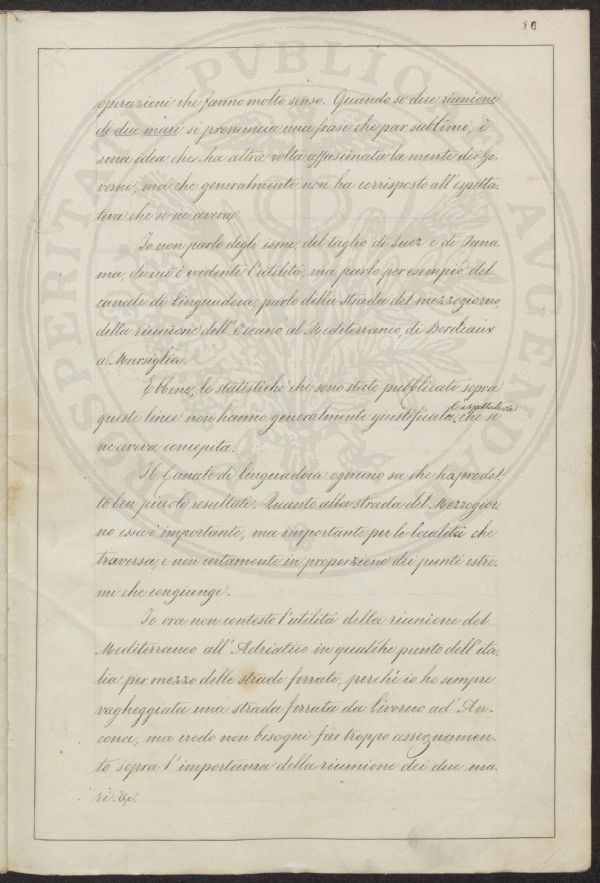 10
operazioni che fanno molto senso. Quando si dice riunione
di due mari si pronuncia una frase che par sublime, è
una idea che ha altre volte affascinata la mente dei Go-
verni, ma che generalmente non ha corrisposto all'espetta-
tiva che se ne aveva.
Io non parlo degli ismi, del taglio di Suez e di Pana-
ma, di cui è evidente l'utilità, ma parlo per esempio del
canale di Linguadoca, parlo della strada del mezzogiorno,
della riunione dell'Oceano al Mediterraneo, di Bordeaux
a Marsiglia.
Ebbene, le statistiche che sono state pubblicate sopra
queste linee non hanno generalmente giustificata l'aspettativa che se
ne aveva concepita.
Il Canale di Linguadoca ognuno sa che ha prodot-
to ben piccoli resultati. Quanto alla strada del Mezzogior-
no essa è importante, ma importante per le località che
traversa, e non certamente in proporzione dei punti estre-
mi che congiunge.
Io ora non contesto l'utilità della riunione del
Mediterraneo all'Adriatico in qualche punto dell'ita-
lia per mezzo delle strade ferrate, perché io ho sempre
vagheggiata una strada ferrata da Livorno ad An-
cona, ma credo non bisogni far troppo assegnamen-
to sopra l'importanza della riunione dei due ma-
ri.
PROSPERITATI PVBLICAE AVGENDAE